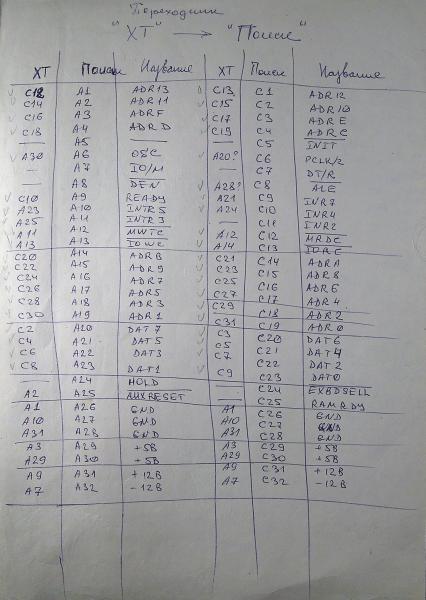 Переходник
"XT" → "Поиск"
XT Поиск Название XT Поиск Название
C12 A1 ADR13 C13 C1 ADR12
C14 A2 ADR11 C15 C2 ADR10
C16 A3 ADRF C17 C3 ADRE
C18 A4 ADRD C19 C4 ADRC
— A5 — — C5 INIT
A30 A6 OSC A20? C6 PCLK/2
— A7 IO/M — C7 DT/R
— A8 DEN A28? C8 ALE
C10 A9 READY A21 C9 INR7
A23 A10 INTR5 A24 C10 INR4
A25 A11 INTR3 — C11 INR2
A11 A12 MWTC A12 C12 MRDC
A13 A13 IOWC A14 C13 IORC
C20 A14 ADRB C21 C14 ADRA
C22 A15 ADR9 C23 C15 ADR8
C24 A16 ADR7 C25 C16 ADR6
C26 A17 ADR5 C27 C17 ADR4
C28 A18 ADR3 C29 C18 ADR2
C30 A19 ADR1 C31 C19 ADR0
C2 A20 DAT7 C3 C20 DAT6
C4 A21 DAT5 C5 C21 DAT4
C6 A22 DAT3 C7 C22 DAT2
C8 A23 DAT1 C9 C23 DAT0
— A24 HOLD — C24 EXBDSELL
A2 A25 AUXRESET — C25 RAMRDY
A1 A26 GND A1 C26 GND
A10 A27 GND A10 C27 GND
A31 A28 GND A31 C28 GND
A3 A29 +5В A3 C29 +5В
A29 A30 +5В A29 C30 +5В
A9 A31 +12В A9 C31 +12В
A7 A32 -12В A7 C32 -12В